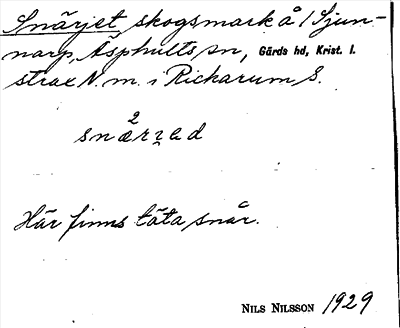 Snärjet, skogsmark å 1 Sjun-
narp, Äsphults sn, Gärds hd, Krist. l.
strax N. m. i Rickarum S.
2
snærǝd
Här finns täta snår.
NILS NILSSON 1929